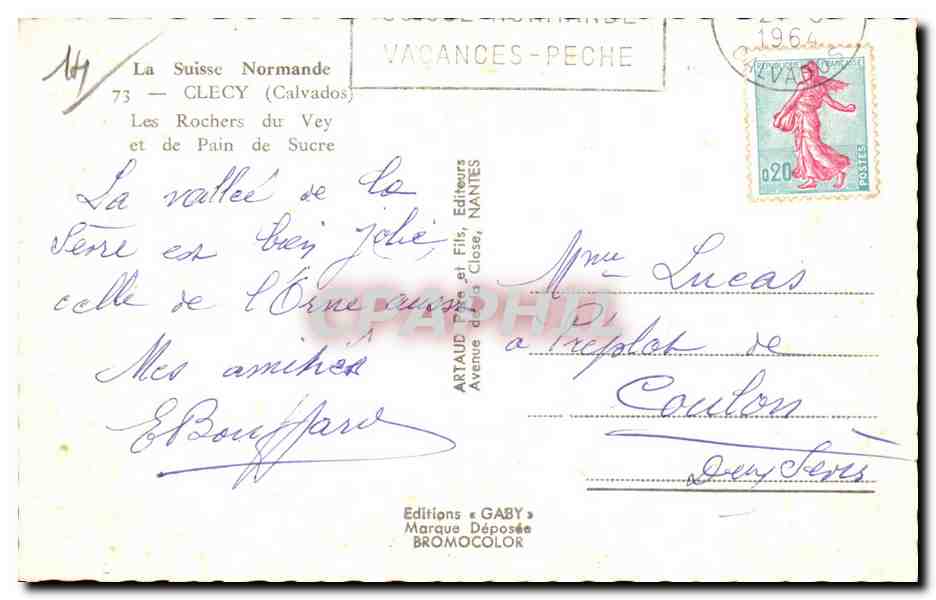 VACANCES-PECHE
1964
CALVADOS
14
La Suisse Normande
73 — CLECY (Calvados)
Les Rochers du Vey
et de Pain de Sucre
REPUBLIQUE FRANÇAISE
0,20
POSTES
La vallée de la
Sèvre est bien jolie,
celle de l'Orne aussi
Mes amitiés
EBouffard
ARTAUD Père et Fils, Editeurs
Avenue de la Close, NANTES
Mme Lucas
à Préplot de
Coulon
Deux Sèvres
CPAPHIL
Editions « GABY »
Marque Déposée
BROMOCOLOR